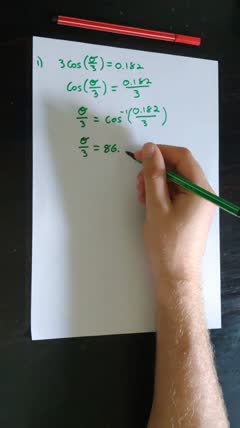 1) 3cos(θ/3) = 0.182
cos(θ/3) = 0.182/3
θ/3 = cos⁻¹(0.182/3)
θ/3 = 86.